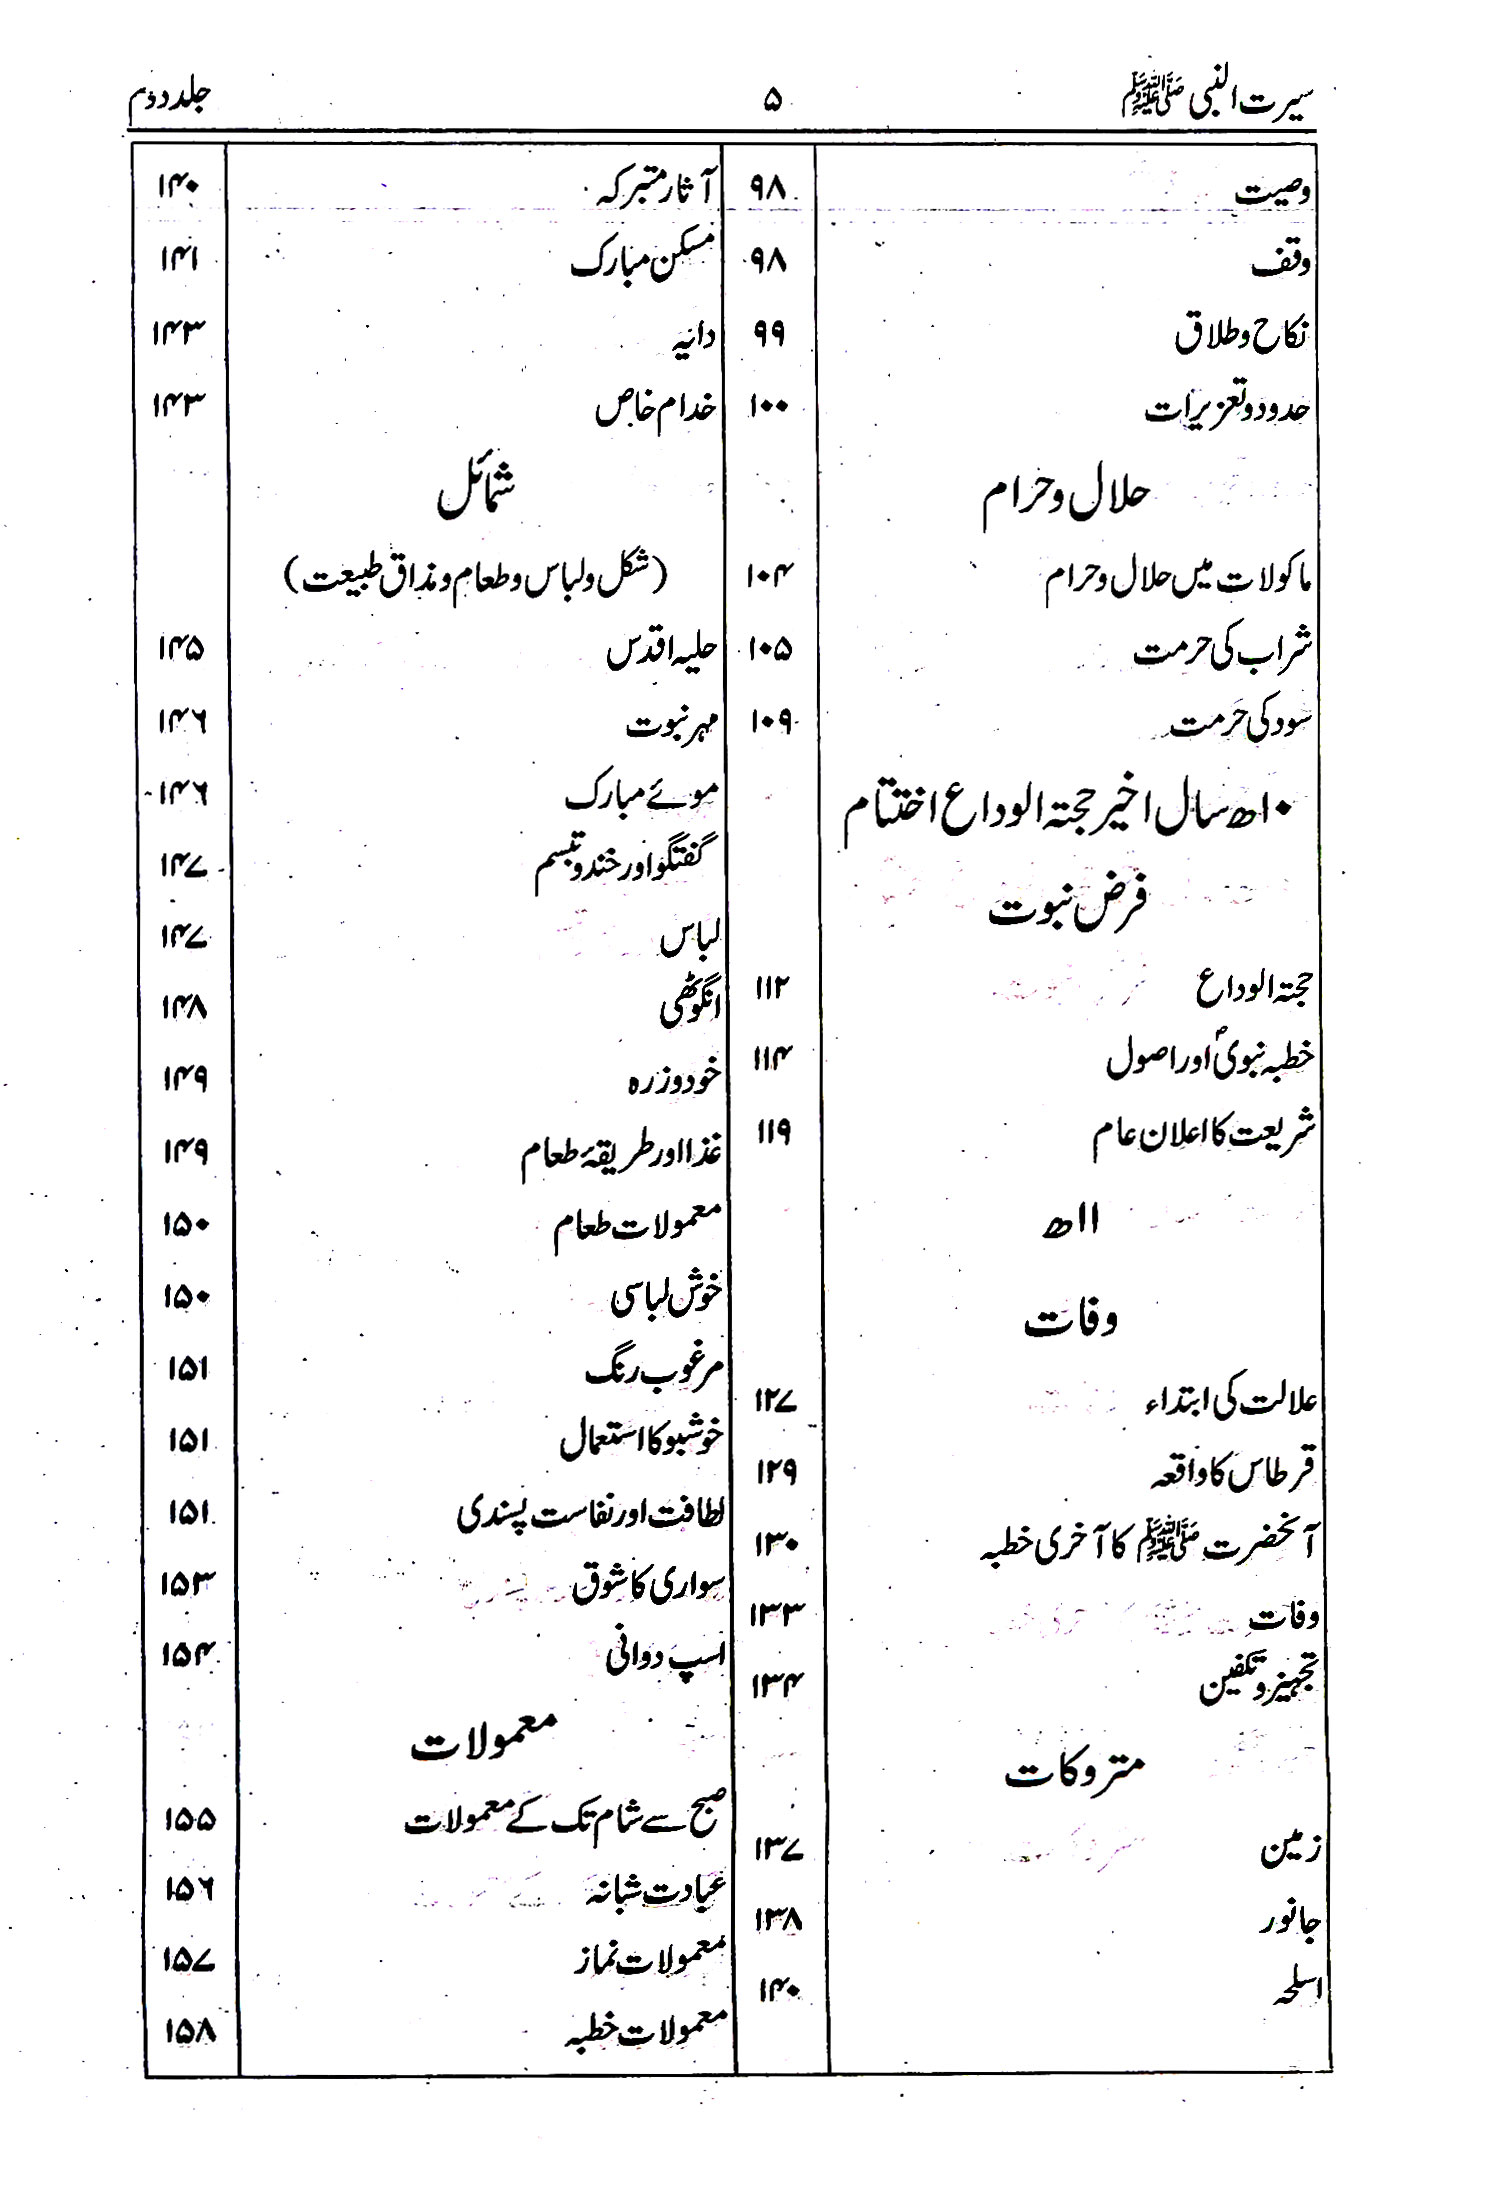 سیرت النبی ﷺ ۵ جلد دوم
وصیت ۹۸
وقف ۹۸
نکاح و طلاق ۹۹
حدود و تعزیرات ۱۰۰
حلال و حرام
ماکولات میں حلال و حرام ۱۰۴
شراب کی حرمت ۱۰۵
سود کی حرمت ۱۰۹
۱۰ھ سال اخیر حجتہ الوداع اختتام
فرض نبوت
حجتہ الوداع ۱۱۲
خطبہ نبویؐ اور اصول ۱۱۴
شریعت کا اعلان عام ۱۱۹
۱۱ھ
وفات
علالت کی ابتداء ۱۲۷
قرطاس کا واقعہ ۱۲۹
آنحضرت ﷺ کا آخری خطبہ ۱۳۰
وفات ۱۳۳
تجہیز و تکفین ۱۳۴
متروکات
زمین ۱۳۷
جانور ۱۳۸
اسلحہ ۱۴۰
آثار متبرکہ ۱۴۰
مسکن مبارک ۱۴۱
دایہ ۱۴۳
خدام خاص ۱۴۳
شمائل
(شکل و لباس و طعام و مذاق طبیعت)
حلیہ اقدس ۱۴۵
مہر نبوت ۱۴۶
موئے مبارک ۱۴۶
گفتگو اور خندو تبسم ۱۴۷
لباس ۱۴۷
انگوٹھی ۱۴۸
خود و زرہ ۱۴۹
غذا اور طریقۂ طعام ۱۴۹
معمولات طعام ۱۵۰
خوش لباسی ۱۵۰
مرغوب رنگ ۱۵۱
خوشبو کا استعمال ۱۵۱
لطافت اور نفاست پسندی ۱۵۱
سواری کا شوق ۱۵۳
اسپ دوانی ۱۵۴
معمولات
صبح سے شام تک کے معمولات ۱۵۵
عبادت شبانہ ۱۵۶
معمولات نماز ۱۵۷
معمولات خطبہ ۱۵۸